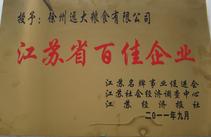 授予：徐州远大粮食有限公司
江苏省百佳企业
江苏名牌事业促进会
江苏社会经济调查中心
江苏经济报社
二〇一一年九月